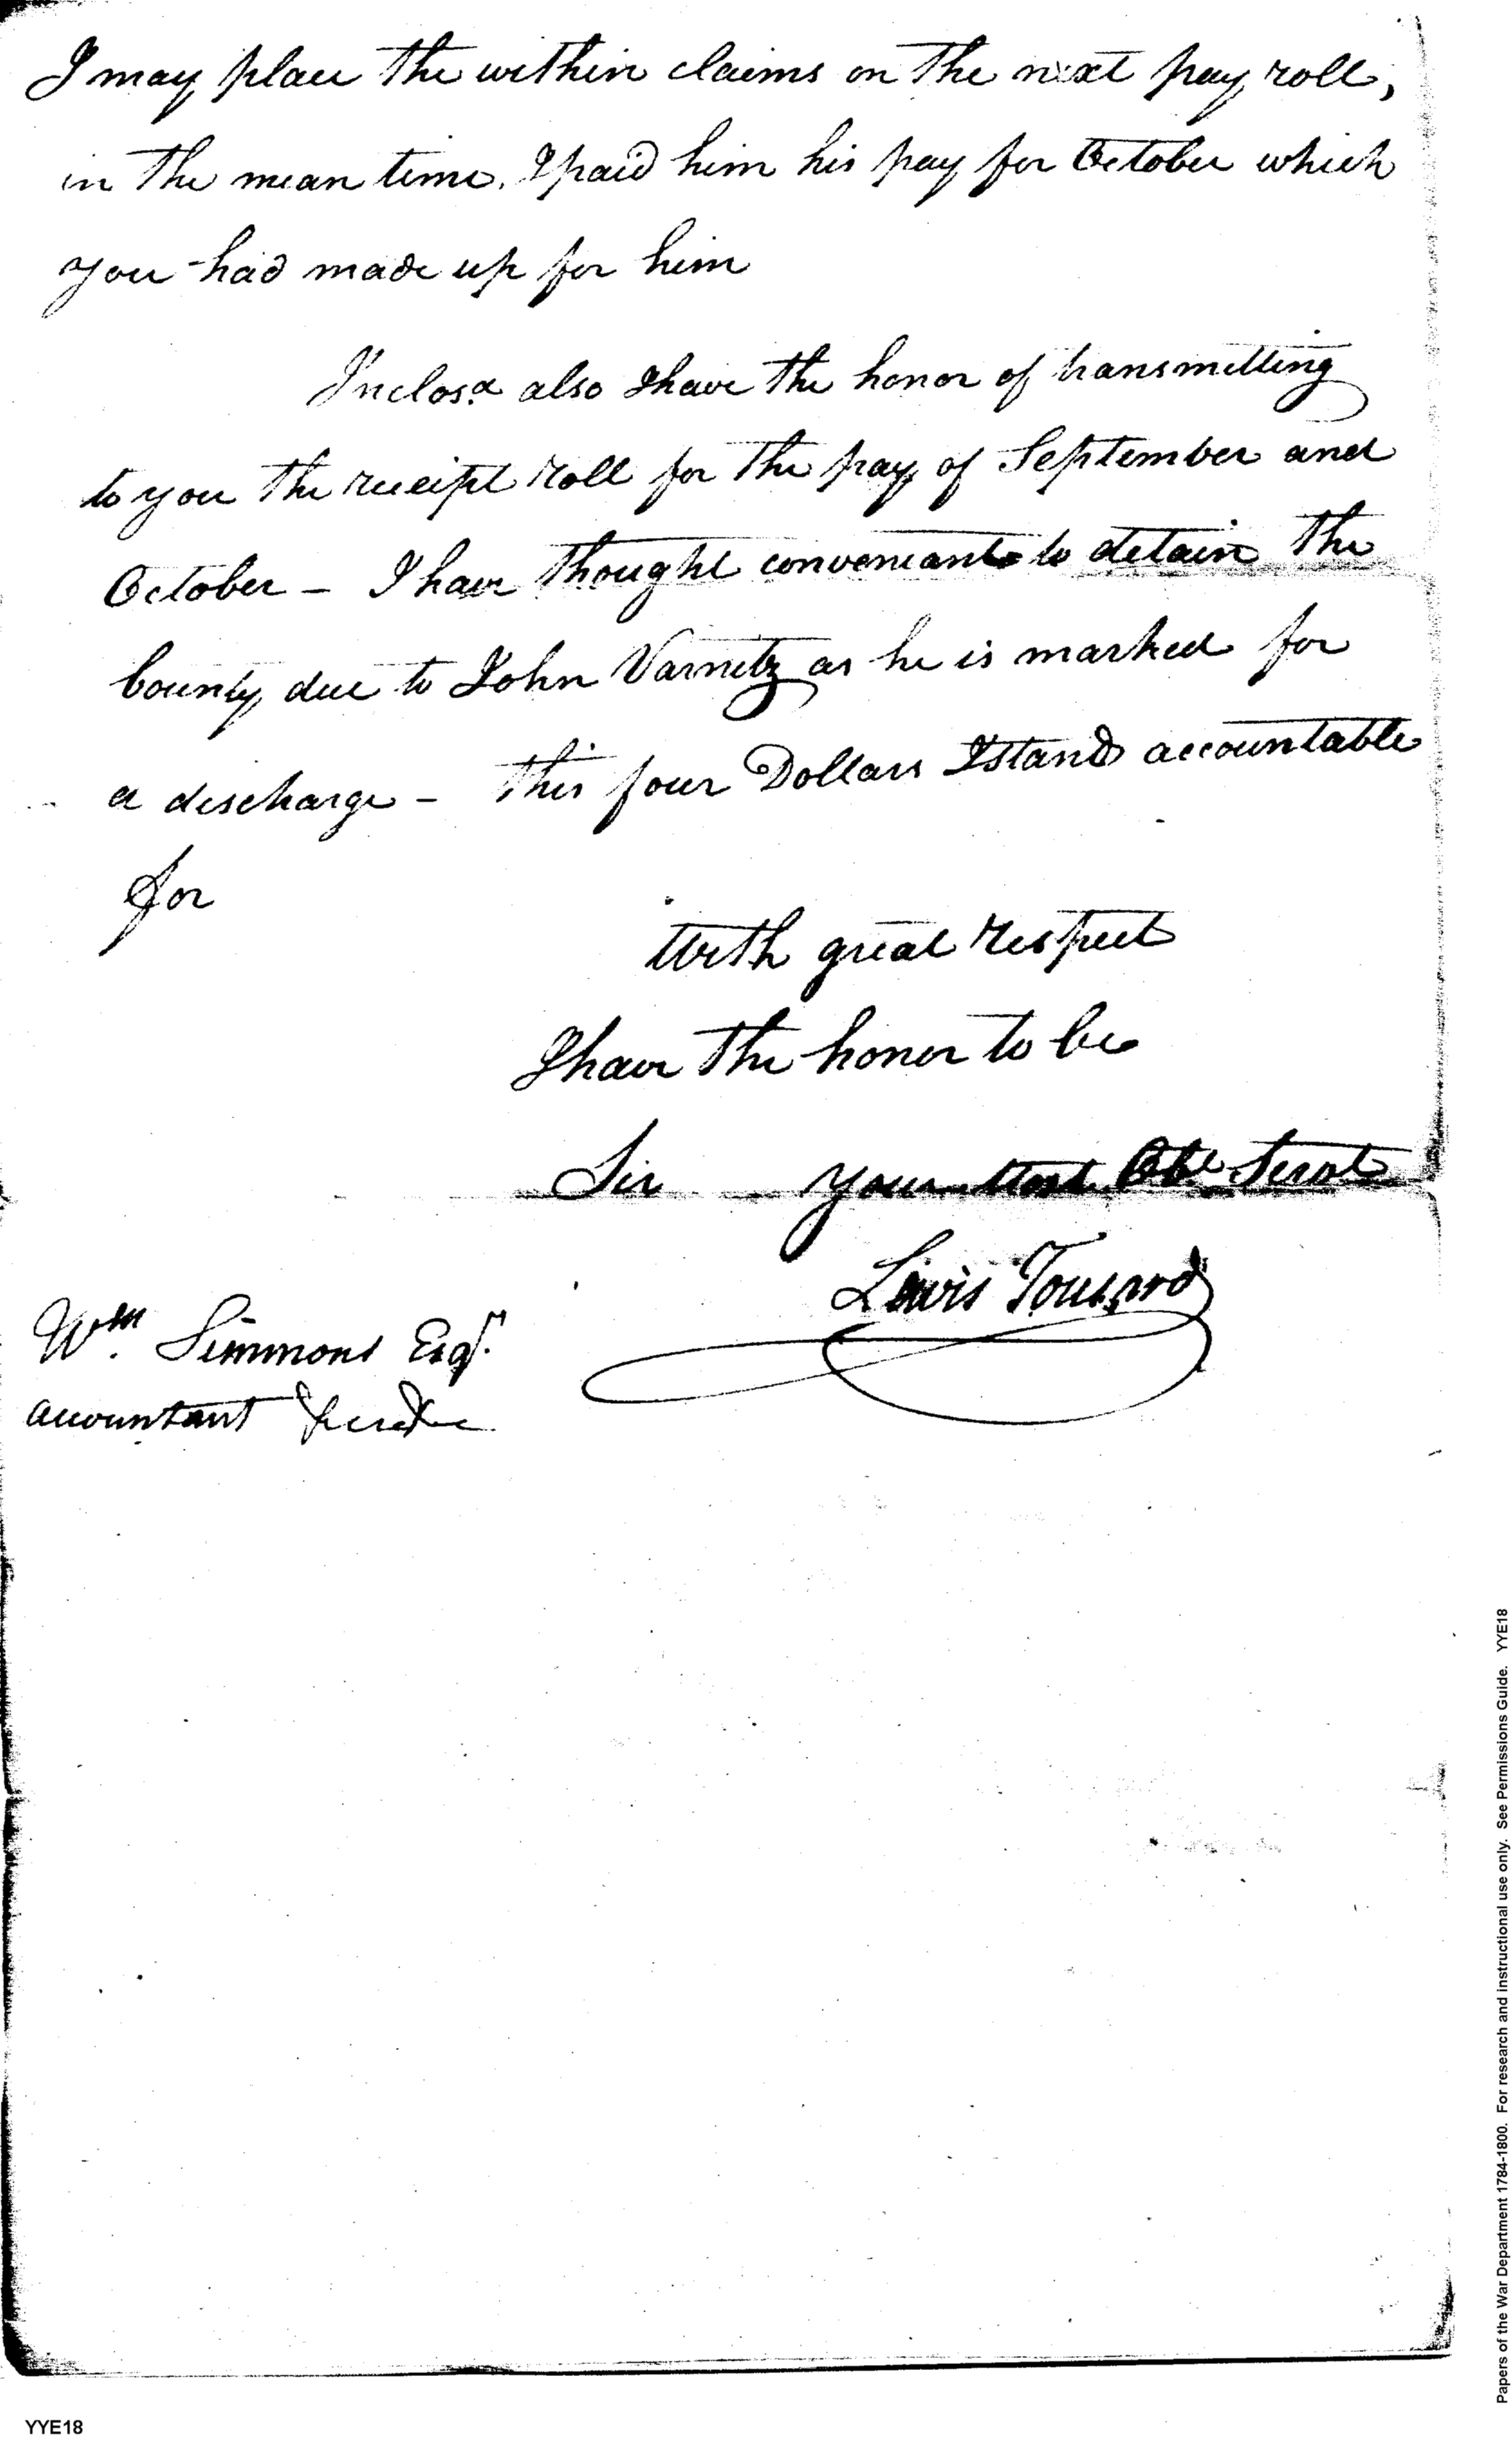 I may place the within claims on the next pay roll,
in the mean time, I paid him his pay for October which
you had made up for him
Inclosd also I have the honor of transmitting
to you the receipt roll for the pay of September and
October – I have thought conveniant to detain the
bounty due to John Varnitz as he is marked for
a discharge – this four Dollars I stand accountable
for
With great respect
I have the honor to be
Sir your Most Obt Servt
Lewis Tousard
Wm Simmons Esqr
accountant
Papers of the War Department 1784-1800. For research and instructional use only. See Permissions Guide. YYE18
YYE18